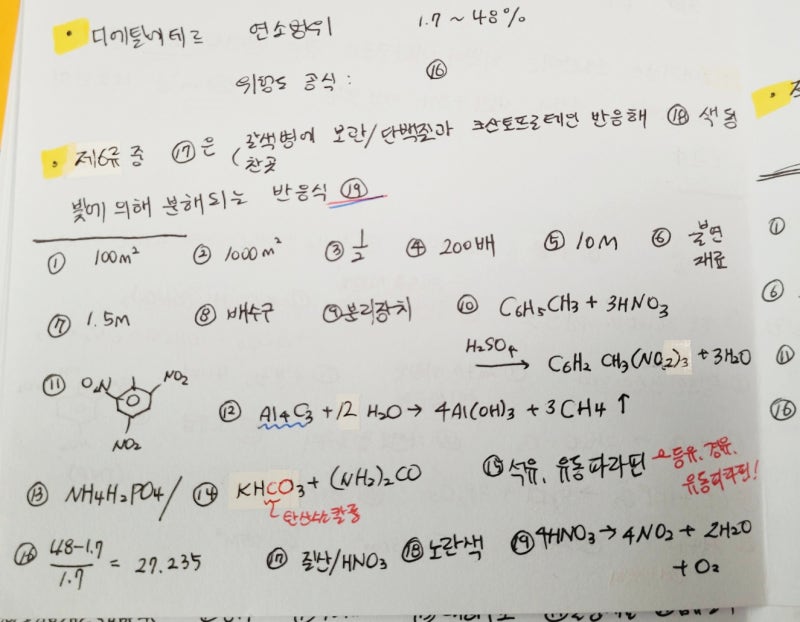 • 디에틸에테르 연소범위 1.7 ~ 48%
위험도 공식 : ⑯
• 제6류 중 ⑰은 (갈색병에 보관/단백질과 크산토프로테인 반응해 ⑱ 색 됨
찬곳
빛에 의해 분해되는 반응식 ⑲
① 100m² ② 1000m² ③ 1/2 ④ 200배 ⑤ 10M ⑥ 불연
재료
⑦ 1.5m ⑧ 배수구 ⑨ 분리장치 ⑩ C6H5CH3 + 3HNO3
H2SO4 → C6H2 CH3(NO2)3 + 3H2O
⑪ O2N NO2 NO2
⑫ Al4C3 + 12 H2O → 4Al(OH)3 + 3CH4 ↑
⑬ NH4H2PO4 / ⑭ KHCO3 + (NH2)2CO ⑮ 석유, 유동파라핀 → 등유, 경유,
유동파라핀!
탄산수소칼륨
⑯ 48-1.7 / 1.7 = 27.235 ⑰ 질산/HNO3 ⑱ 노란색 ⑲ 4HNO3 → 4NO2 + 2H2O
+ O2
①
⑥
⑪
⑯